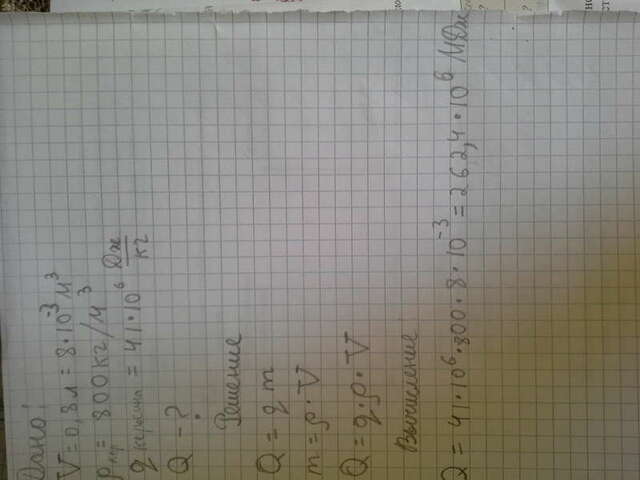 Дано:
V = 0,8 л = 8·10⁻³ м³
ρкер = 800 кг/м³
q керосина = 41·10⁶ Дж/кг
Q - ?
Решение
Q = q m
m = ρ · V
Q = q·ρ·V
Вычисление
Q = 41·10⁶·800·8·10⁻³ = 262,4·10⁶ МДж